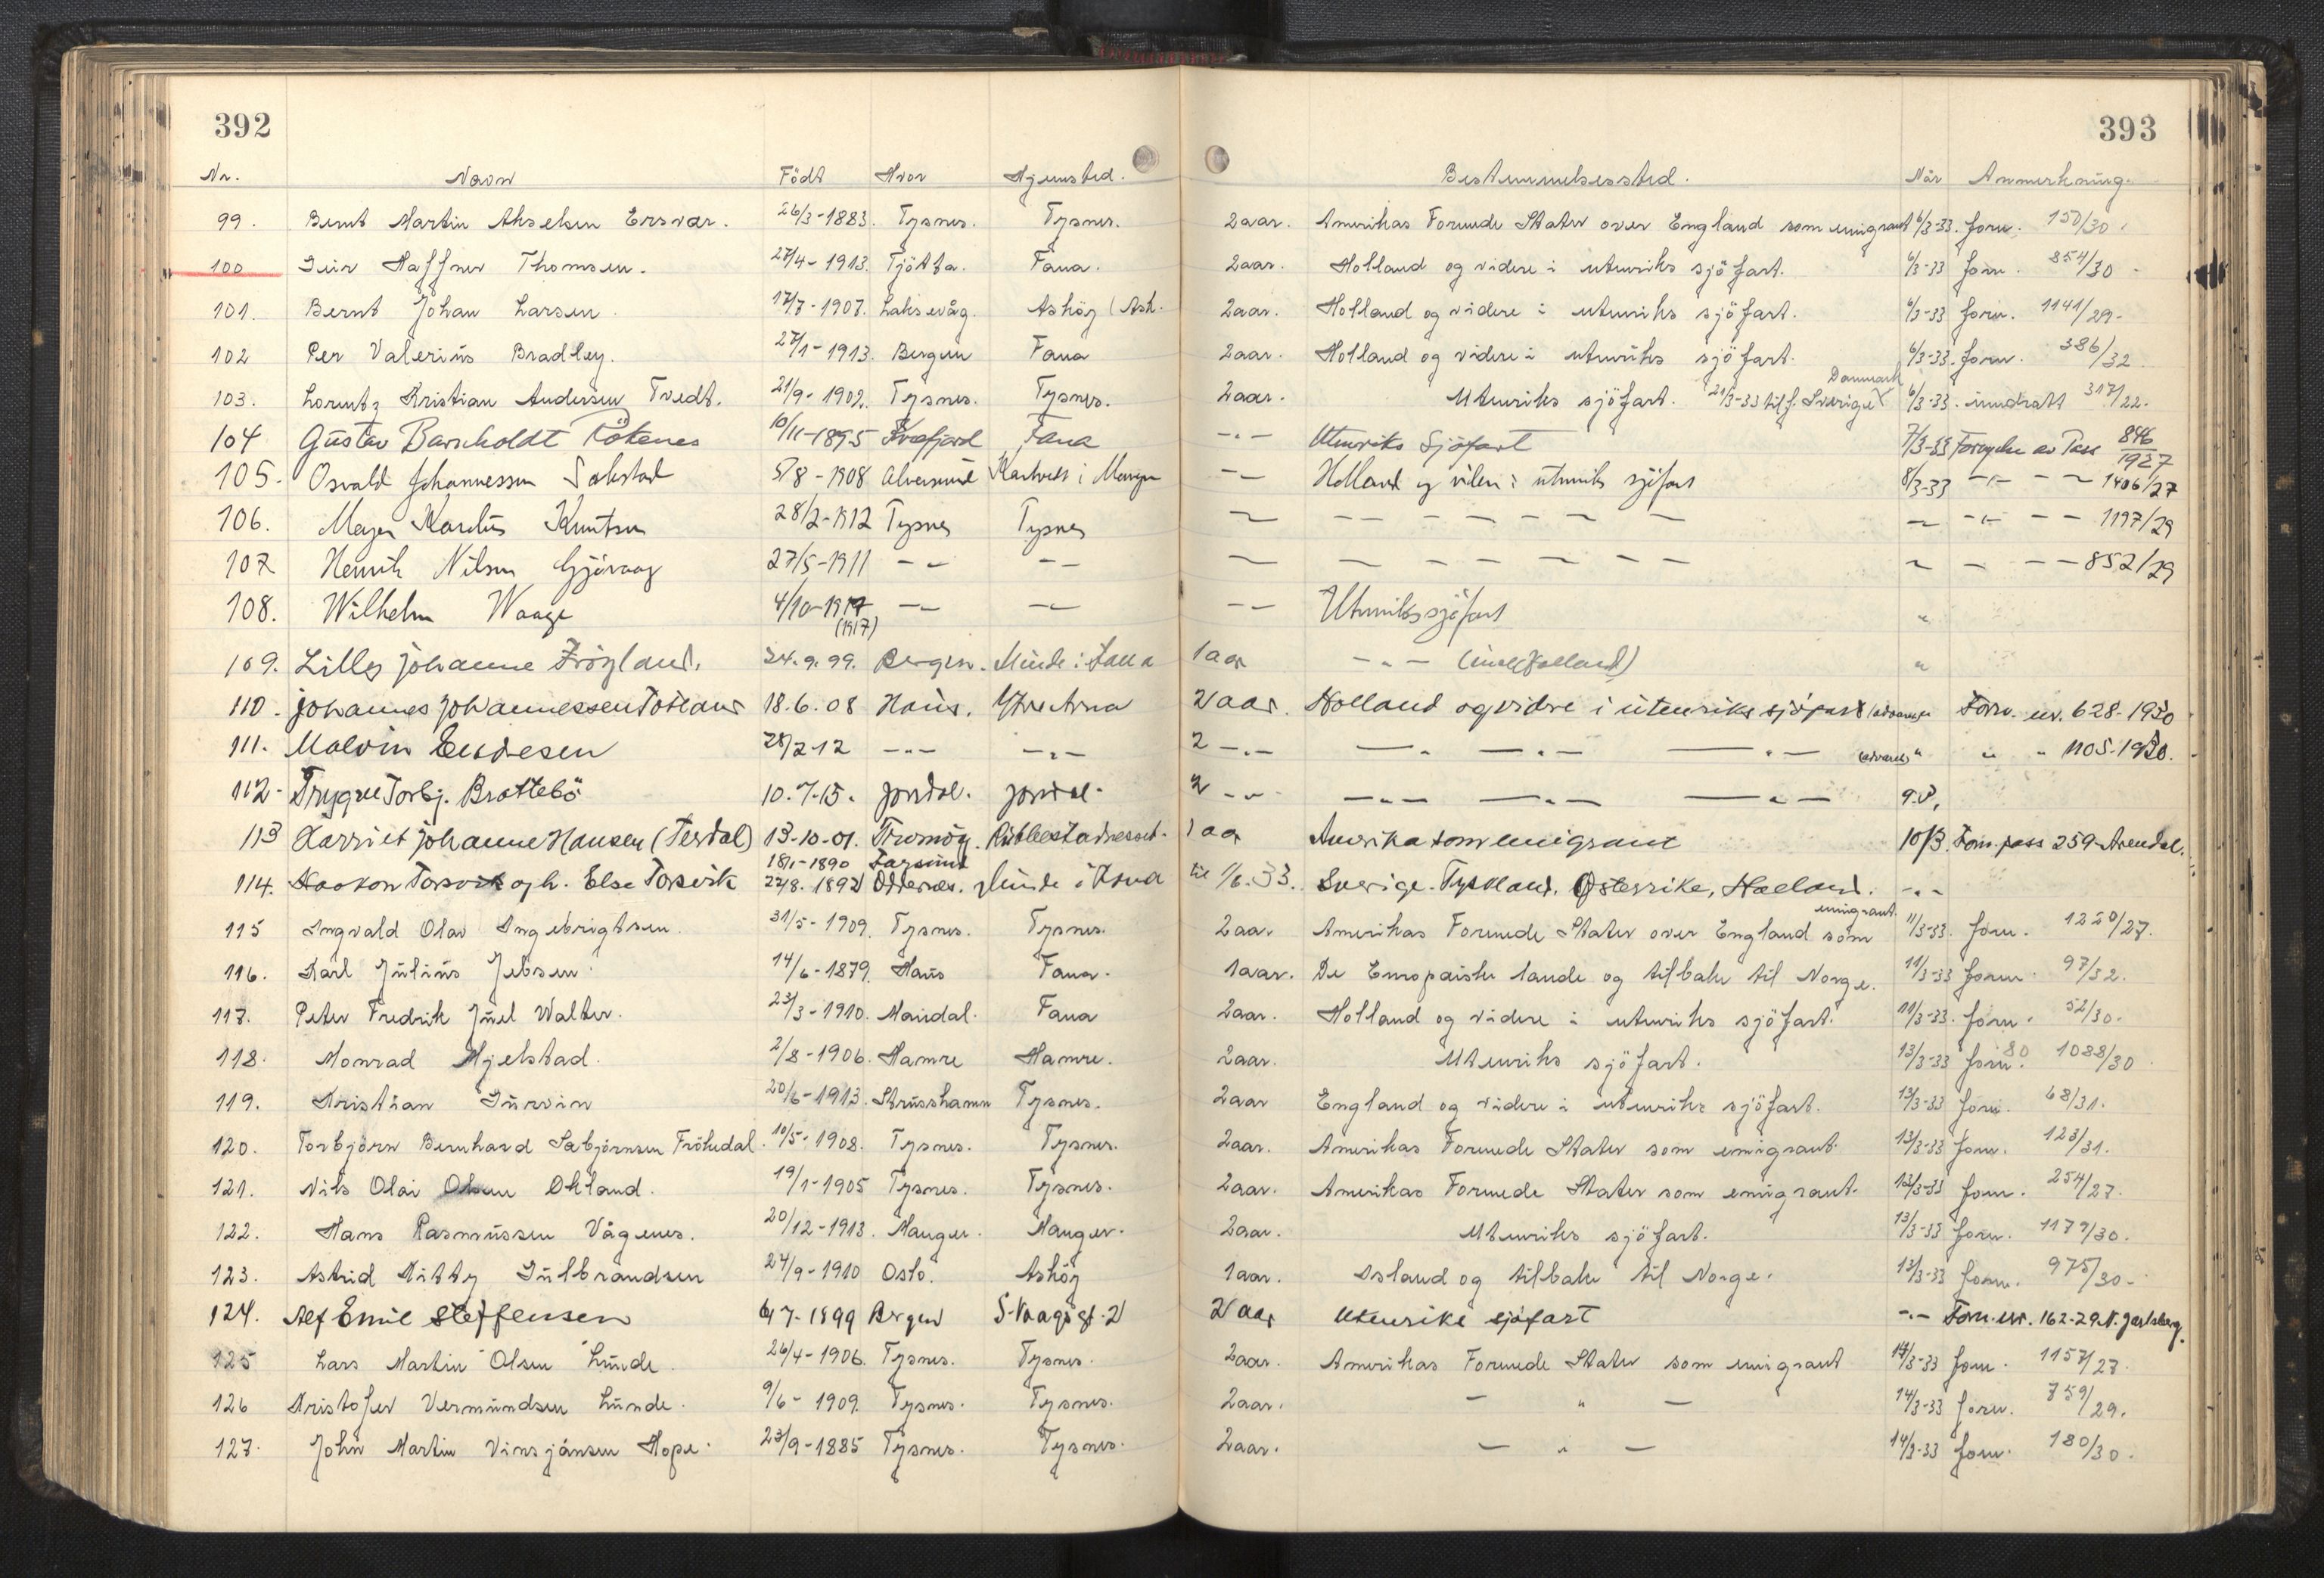 392
393
Nr. Navn Födt Hvor Hjemsted. Bestemmelsessted. När Anmerkning.
99. Bernt Martin Akselsen Ersvær. 26/3-1883. Tysnes. Tysnes. 2 aar. Amerikas Forenede Stater over England som emigrant 6/3-33. forn. 150/30.
100 Geir Haffner Thomsen. 27/4-1913. Tjötta. Fana. 2 aar. Holland og videre i utenriks sjöfart. 6/3-33 forn. 854/30
101. Bernt Johan Larsen 17/7-1907. Laksevåg. Askög (Ask. 2 aar. Holland og videre i utenriks sjöfart. 6/3-33 forn. 1141/29-
102 Per Valerius Bradley. 27/1-1913. Bergen Fana 2 aar. Holland og videre i utenriks sjöfart. 6/3-33. forn. 386/32
Danmark
103. Lorentz Kristian Andersen Tvedt. 21/9-1902. Tysnes. Tysnes. 2 aar. Utenriks sjöfart. 21/3-33 tilf. Sverige 6/3-33. inndratt 317/22-
104 Gustav Barnholdt Rötenes 10/11-1895 Kvæfjord Fana -"- Utenriks Sjöfart 7/3-33 Fornyelse av Pass 846/1927
105. Osvald Johannessen Solstad 5/8-1908 Alversund i Manger -- Holland og viden i utenriks sjöfart 8/3-33 -"- -- 1406/27
106. Mayer Kardus Knutsen 28/2-1912 Tysnes Tysnes - - - - - - - - - -"- -- 1197/29
107 Henrik Nilsen Gjövaag 27/5-1911 -- -- - - - - - - - - - - -- 852/29
108. Wilhelm Waage 4/10-1917 -- -- -- Utenrikssjöfart "
(1917)
109. Lilly Johanne Frögland. 24.9.99. Bergen. Minde i Fana 1 aar -"- (incl Holland) "
110. Johannes Johannessen Totland 18.6.08 Haus. Ytre Arna 2 aar. Holland og vidre i utenriks sjöfart Forn. nr. 628-1930
111. Malvin Endresen 28/2-12 -"- -"- 2 -"- -"- -"- -"- " " " 1105-1930.
112- Trygve Torbj. Brattebö 10.7.15. Jondal. Jondal. 2 -"- -"- -"- -"- 9.3.
113 Harriet Johanne Hansen (Terdal) 13-10-01. Tromög. 1 aar Amerika som emigrant 10/3. Forn. pass 259-Arendal.
18/1-1890 Farsund
114. Haakon Torsvik og h. Else Torsvik 22/8.1892 Oddernes. Minde i Fana til 1/6.33. Sverige. Tyskland. Österrike, Holland. -"-
emigrant.
115 Ingvald Olav Ingebrigtsen. 31/5-1909. Tysnes. Tysnes. 2 aar. Amerikas Forenede Stater over England som 11/3-33. forn. 1220/27.
116. Karl Julius Jebsen 14/6-1879. Haus Fana. 1 aar. De Europaiske lande og tilbake til Norge. 11/3-33 forn. 97/32.
117. Peter Fredrik Juel Walter. 23/3-1910. Mandal. Fana 2 aar. Holland og videre i utenriks sjöfart. 11/3-33. forn. 52/30.
118. Monrad Hjelstad. 2/8-1906. Hamre Hamre. 2 aar. Utenriks sjöfart. 13/3-33 forn. 80 1088/30
119. Kristian Gurvin 20/6-1913. Strusshamn Tysnes. 2 aar England og videre i utenriks sjöfart. 13/3-33 forn. 68/31.
120. Torbjörn Bernhard Sæbjörnsen Frökedal. 10/5-1908. Tysnes. Tysnes. 2 aar. Amerikas Forenede Stater som emigrant. 13/3-33 forn. 123/31.
121. Nils Olai Olsen Økland. 19/1-1905 Tysnes. Tysnes. 2 aar. Amerikas Forenede Stater som emigrant. 13/3-33 forn. 254/27.
122. Hans Rasmussen Vågenes. 20/12-1913. Manger. Manger. 2 aar. Utenriks sjöfart. 13/3-33 forn. 1179/30.
123. Astrid Kitty Gulbrandsen 24/9-1910 Oslo. Askög 1 aar. Island og tilbake til Norge. 13/3-33 forn. 975/30-
124. Alf Emil Steffensen 4/7-1899 Bergen 2 aar Utenriks sjöfart -"- Forn. nr. 162-29 N. Jarlsberg.
125 Lars Martin Olsen Lunde. 26/4-1906. Tysnes. Tysnes. 2 aar. Amerikas Forenede Stater som emigrant 14/3-33 forn. 1157/27.
126 Kristofer Vermundsen Lunde. 9/6-1909. Tysnes. Tysnes. 2 aar. - " - 14/3-33 forn. 759/29.
127. John Martin Vinsjansen Hope. 23/9-1885 Tysnes. Tysnes. 2 aar. - " - 14/3-33 forn. 180/30.